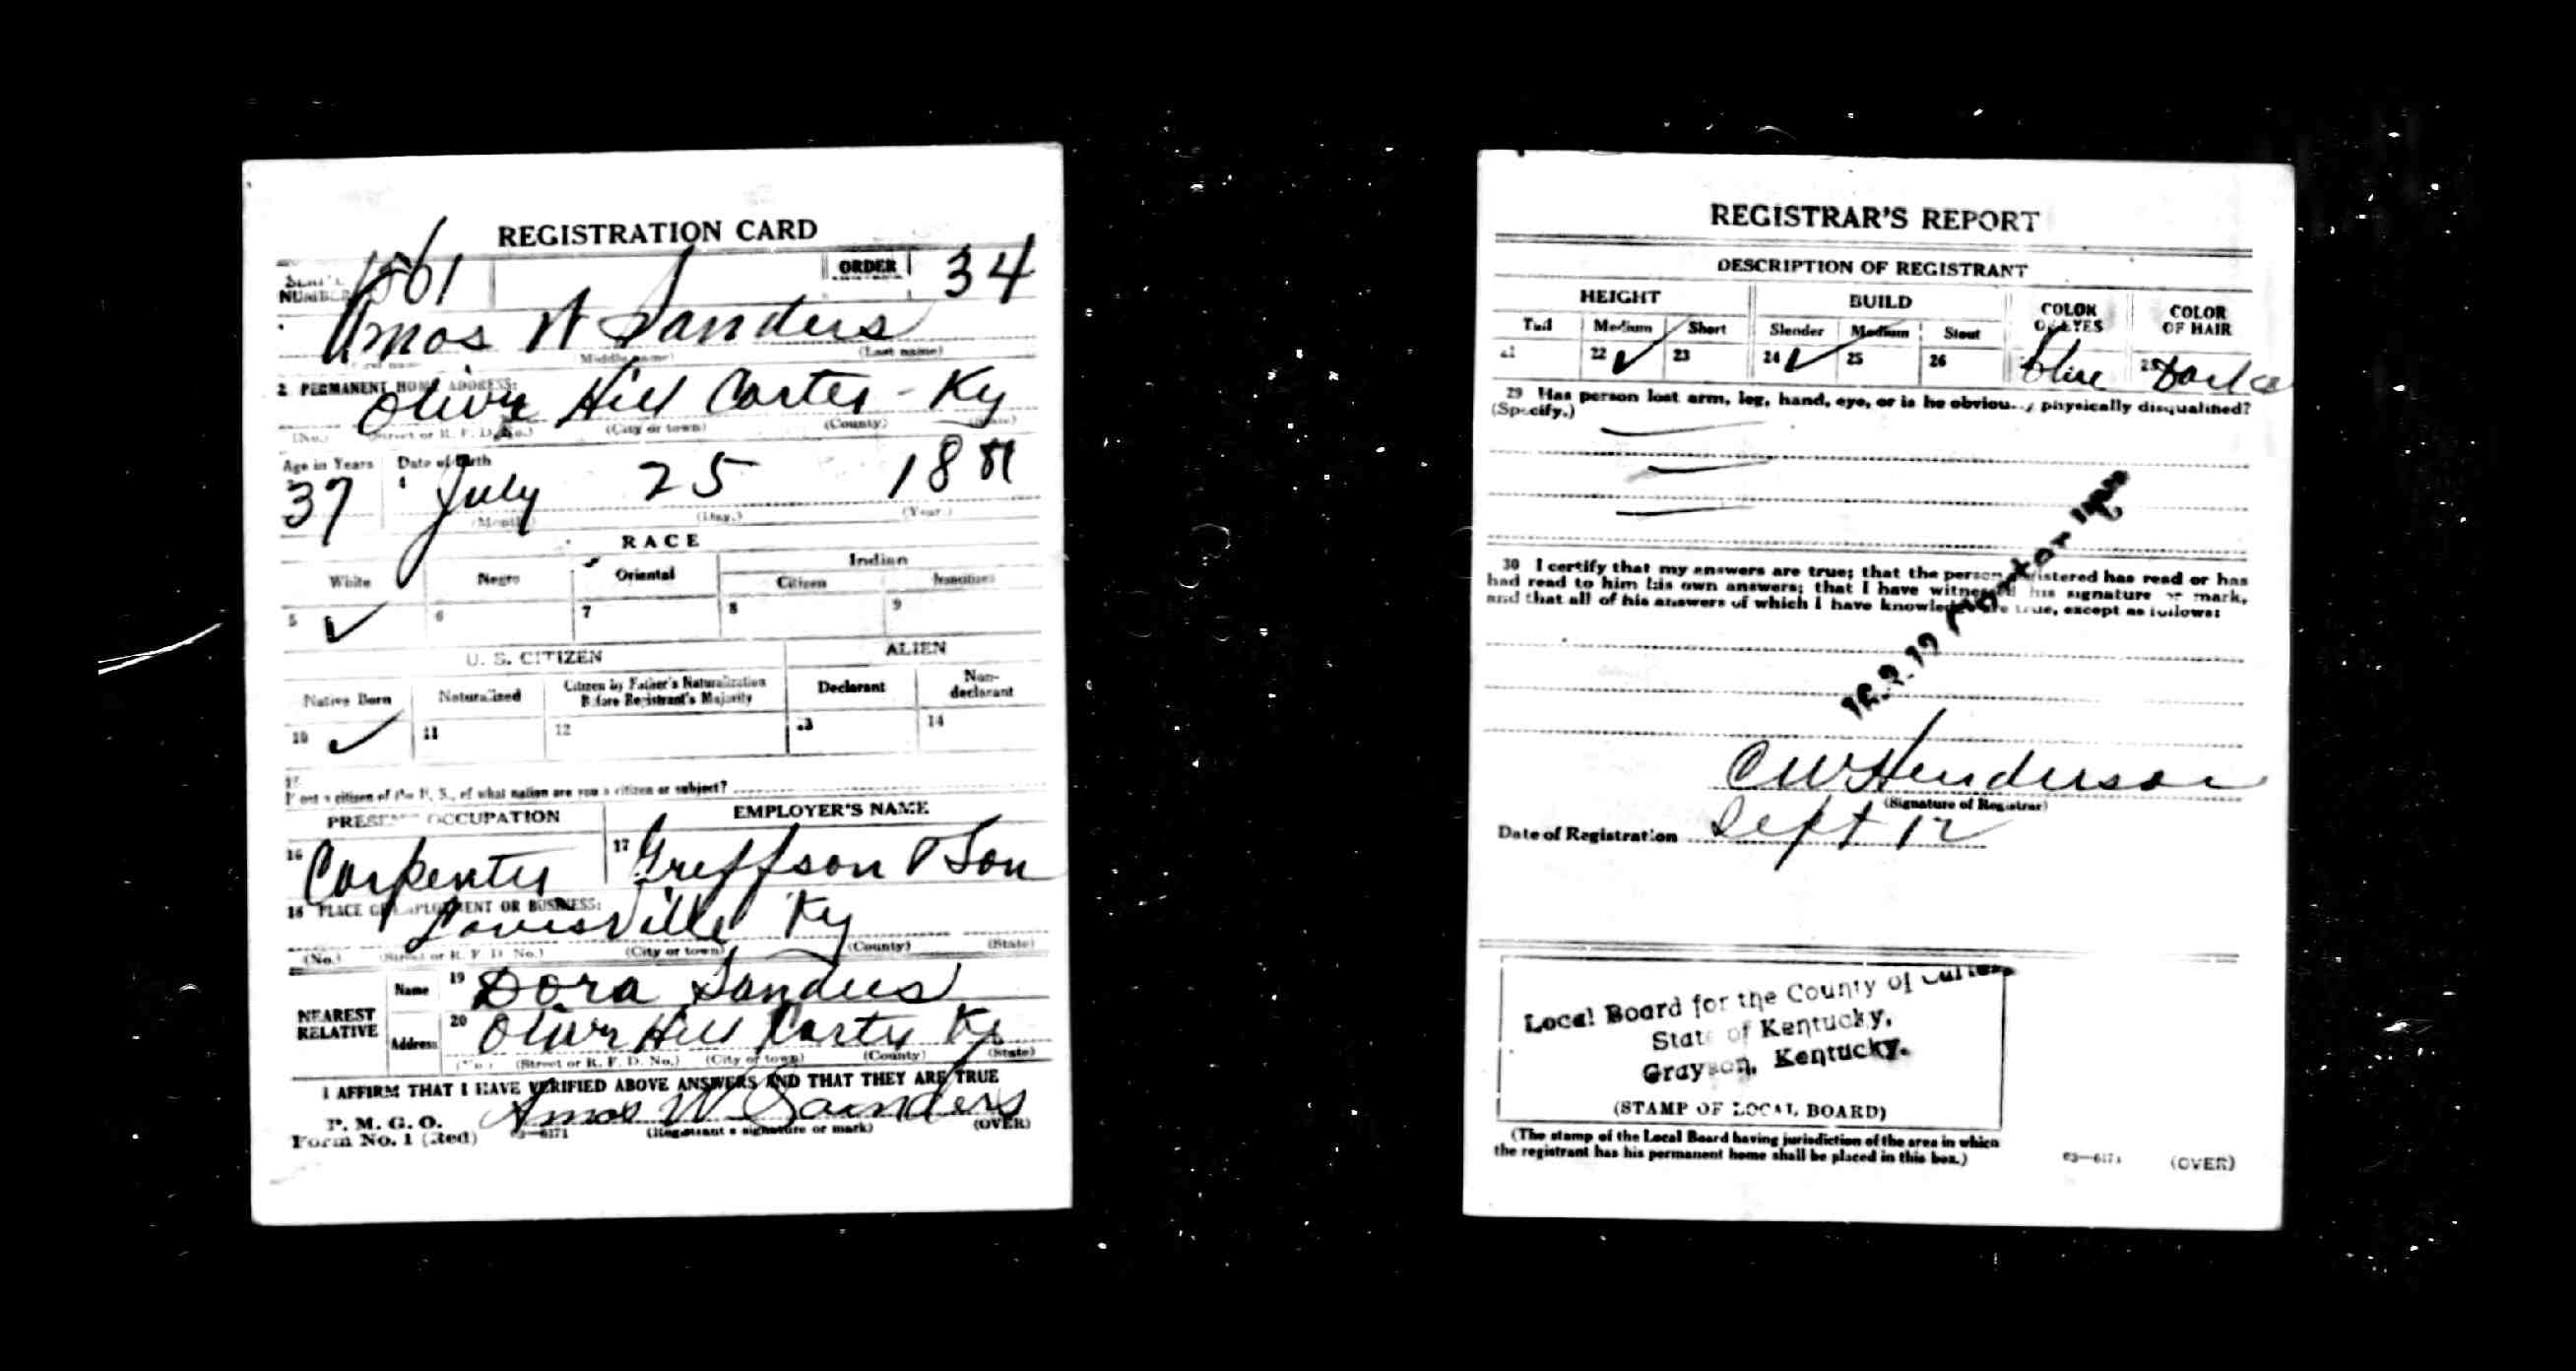 REGISTRATION CARD
SERIAL NUMBER 1561 ORDER 34
Amos W Sanders
(Middle name) (Last name)
2 PERMANENT HOME ADDRESS:
Olive Hill Carter - Ky
(No.) (Street or R. F. D. No.) (City or town) (County) (State)
Age in Years Date of Birth
37 4 July 25 1881
(Month) (Day.) (Year.)
RACE
White Negro Oriental Indian
Citizen Noncitizen
5 ✓ 6 7 8 9
U. S. CITIZEN ALIEN
Native Born Naturalized Citizen by Father's Naturalization Before Registrant's Majority Declarant Non-declarant
10 ✓ 11 12 13 14
If not a citizen of the U. S., of what nation are you a citizen or subject?
PRESENT OCCUPATION EMPLOYER'S NAME
16 Carpenter 17 Greffson & Son
18 PLACE OF EMPLOYMENT OR BUSINESS:
Louisville Ky
(No.) (Street or R. F. D. No.) (City or town) (County) (State)
NEAREST RELATIVE
Name 19 Dora Sanders
Address 20 Olive Hill Carter Ky
(No.) (Street or R. F. D. No.) (City or town) (County) (State)
I AFFIRM THAT I HAVE VERIFIED ABOVE ANSWERS AND THAT THEY ARE TRUE
P. M. G. O.
Form No. 1 (Red) 03—6171 Amos W Saunders
(Registrant's signature or mark) (OVER)
REGISTRAR'S REPORT
DESCRIPTION OF REGISTRANT
HEIGHT BUILD COLOR OF EYES COLOR OF HAIR
Tall Medium Short Slender Medium Stout
21 22 ✓ 23 24 ✓ 25 26 blue Dark
29 Has person lost arm, leg, hand, eye, or is he obviously physically disqualified?
(Specify.)
30 I certify that my answers are true; that the person registered has read or has
had read to him his own answers; that I have witnessed his signature or mark,
and that all of his answers of which I have knowledge are true, except as follows:
C W Henderson
(Signature of Registrar)
Date of Registration Sept 12
Local Board for the County of Carter
State of Kentucky,
Grayson, Kentucky.
(STAMP OF LOCAL BOARD)
(The stamp of the Local Board having jurisdiction of the area in which
the registrant has his permanent home shall be placed in this box.)
03—6171 (OVER)